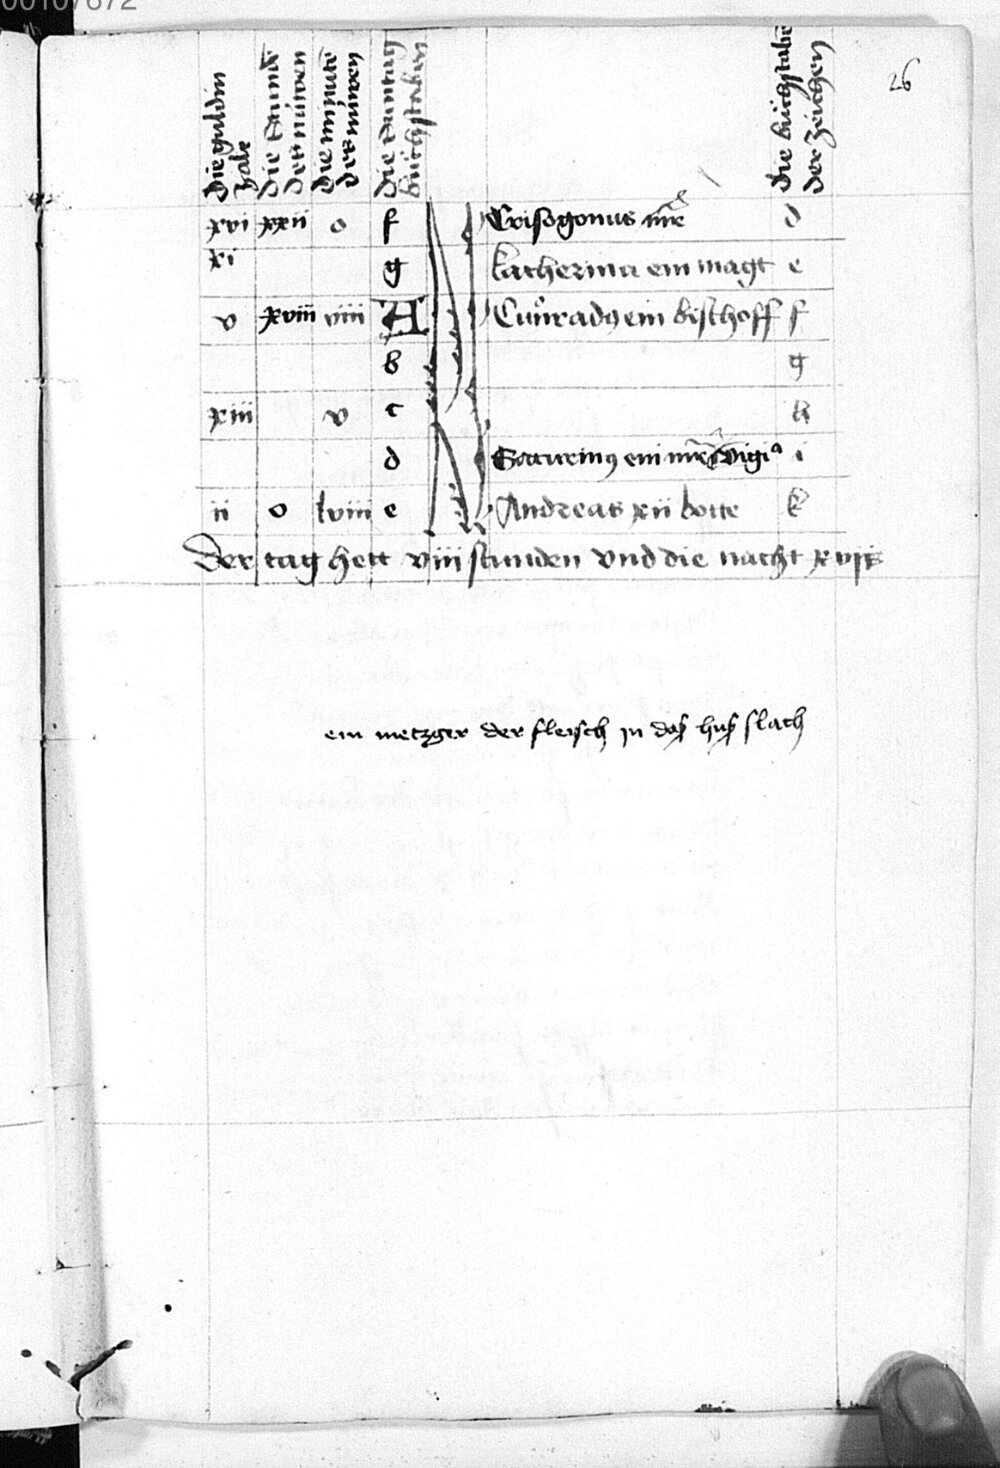 00107672
26
Die guldin zale
Die stunde der nüwen
Die minutē der nüwen
Die suntag büchstaben
Die büchstabē der zeichen
xvi xxii o f Crisogonus mr̄e d
xi g katherina ein magt e
v xviii viii A Cunradꝯ ein bischoff f
b g
xiii v c h
d Sattirinꝯ ein mr̄e vigiᵃ i
ii o lviii e Andreas xii botte k
Der tag hett viii stunden vnd die nacht xvi
ein metzger der fleisch in daß huß slach